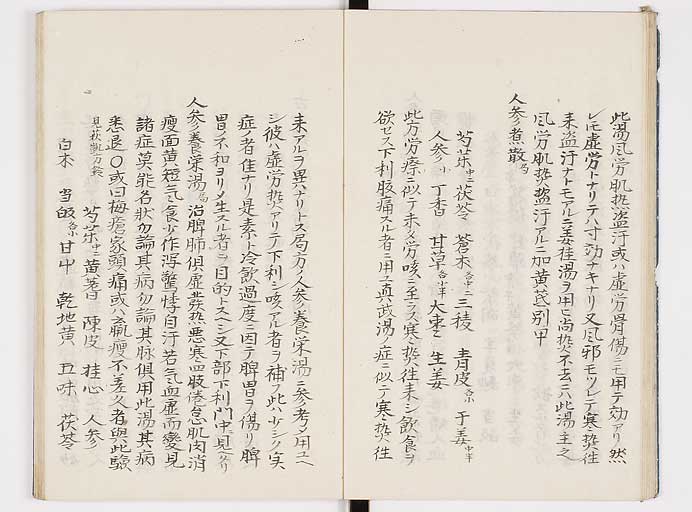 此湯風労肌熱盗汗或ハ虚労骨傷ニモ用テ効アリ然
レ𪜈虚労トナリテハ寸効ナキナリ又風邪モツレテ寒熱往
来盗汗ナトモアルニ姜桂湯ヲ用ヒ尚熱不去ニハ此湯主之
風労肌熱盗汗アルニ加黄芪別甲
人参煮散 局
芍薬 中二 茯苓 蒼朮 各中二 三稜 青皮 各小 于姜 中半
人参 小 丁香 甘草 各小半 大棗 生姜
此方労瘵ニ似テ未タ労咳ニ至ラス寒熱往来シ飲食ヲ
欲セス下利腹痛スル者ニ用ユ真武湯ノ症ニ似テ寒熱往
来アルヲ異ハナリトス局方ノ人参養栄湯ニ参考ノ用ユヘ
シ彼ハ虚労熱アリテ下利シ咳アル者ヲ補フ此ハ少シク実
症ノ者隹ナリ是素ト冷飲過度ニ因テ脾胃ヲ傷リ脾
胃ノ不和ヨリノ生スル者ヲ目的トスヘシ又下部下利門中ニ見ヘタリ
人参養栄湯 局 治脾肺倶虚発熱悪寒四肢倦怠肌肉消
瘦面黄短気食少作瀉驚悸自汗若気血虚而變見
諸症莫能名状勿論其病勿論其脉倶用此湯其病
悉退〇或曰梅瘡家頭痛或ハ羸瘦不差久者與此驗
見荻凱万糵 芍薬 中二 黄耆 陳皮 桂心 人参
白朮 当皈 各小 甘中 乾地黄 五味 茯苓